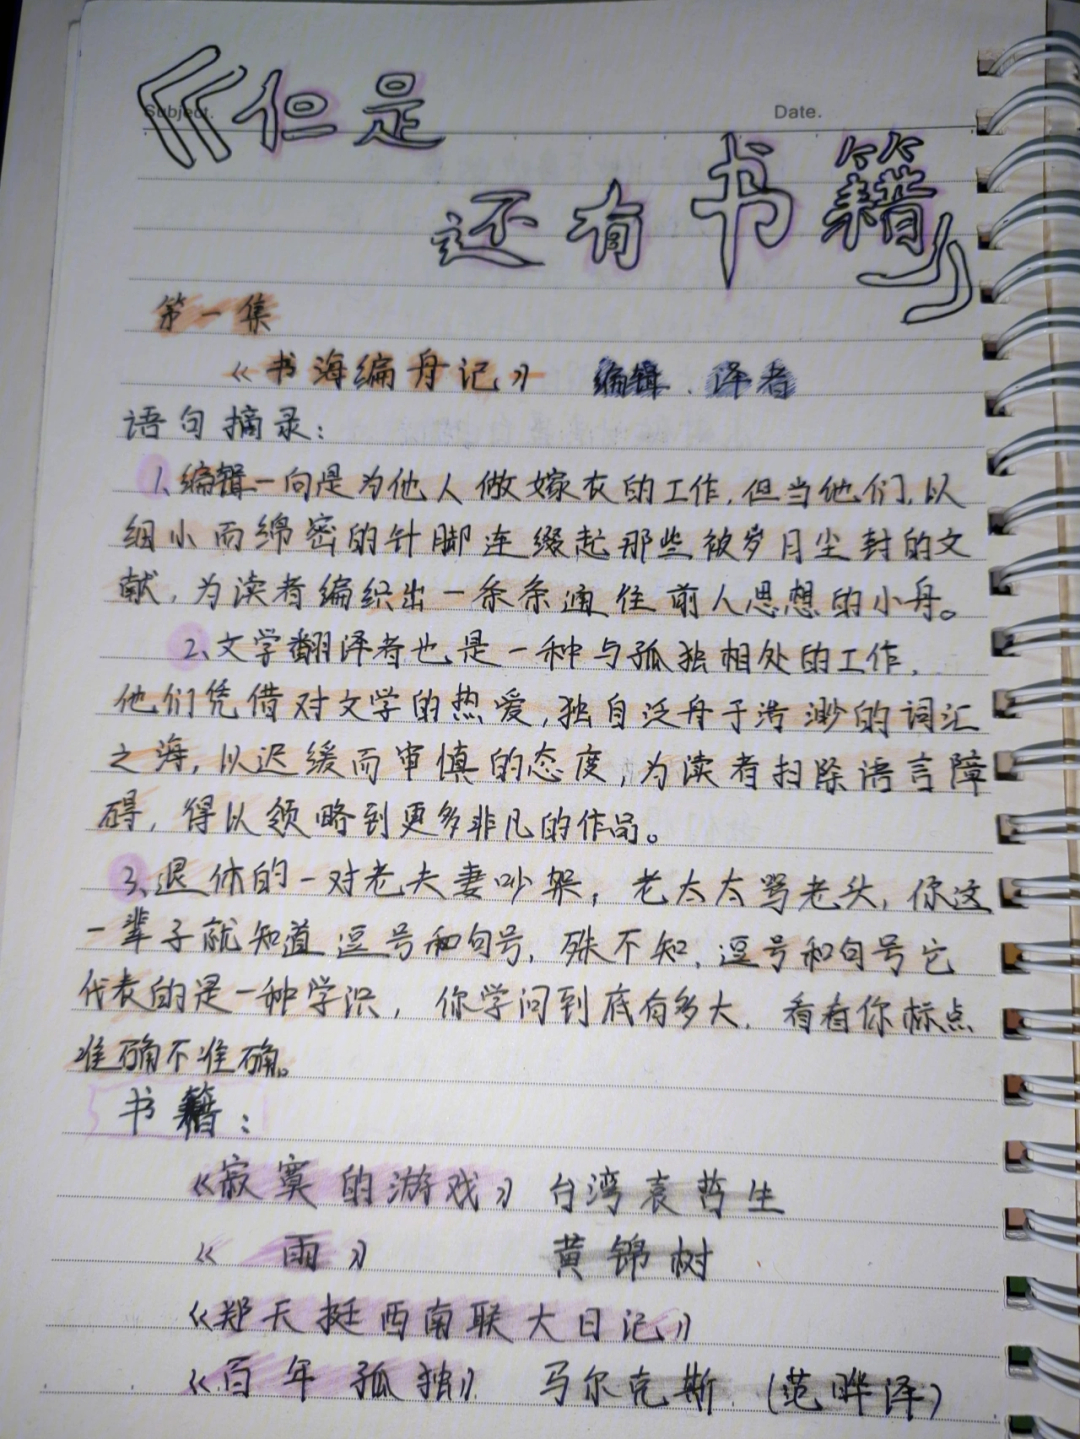 Subject.
Date.
《但是
还有书籍》
第一集
《书海编舟记》 编辑.译者
语句摘录:
1、编辑一向是为他人做嫁衣的工作,但当他们,以
细小而绵密的针脚连缀起那些被岁月尘封的文
献,为读者编织出一条条通往前人思想的小舟。
2、文学翻译者也是一种与孤独相处的工作,
他们凭借对文学的热爱,独自泛舟于浩渺的词汇
之海,以迟缓而审慎的态度,为读者扫除语言障
碍,得以领略到更多非凡的作品。
3、退休的一对老夫妻吵架,老太太骂老头,你这
一辈子就知道逗号和句号,殊不知,逗号和句号它
代表的是一种学识,你学问到底有多大,看看你标点
准确不准确。
书籍:
《寂寞的游戏》 台湾袁哲生
《雨》 黄锦树
《郑天挺西南联大日记》
《百年孤独》 马尔克斯.(范晔译)